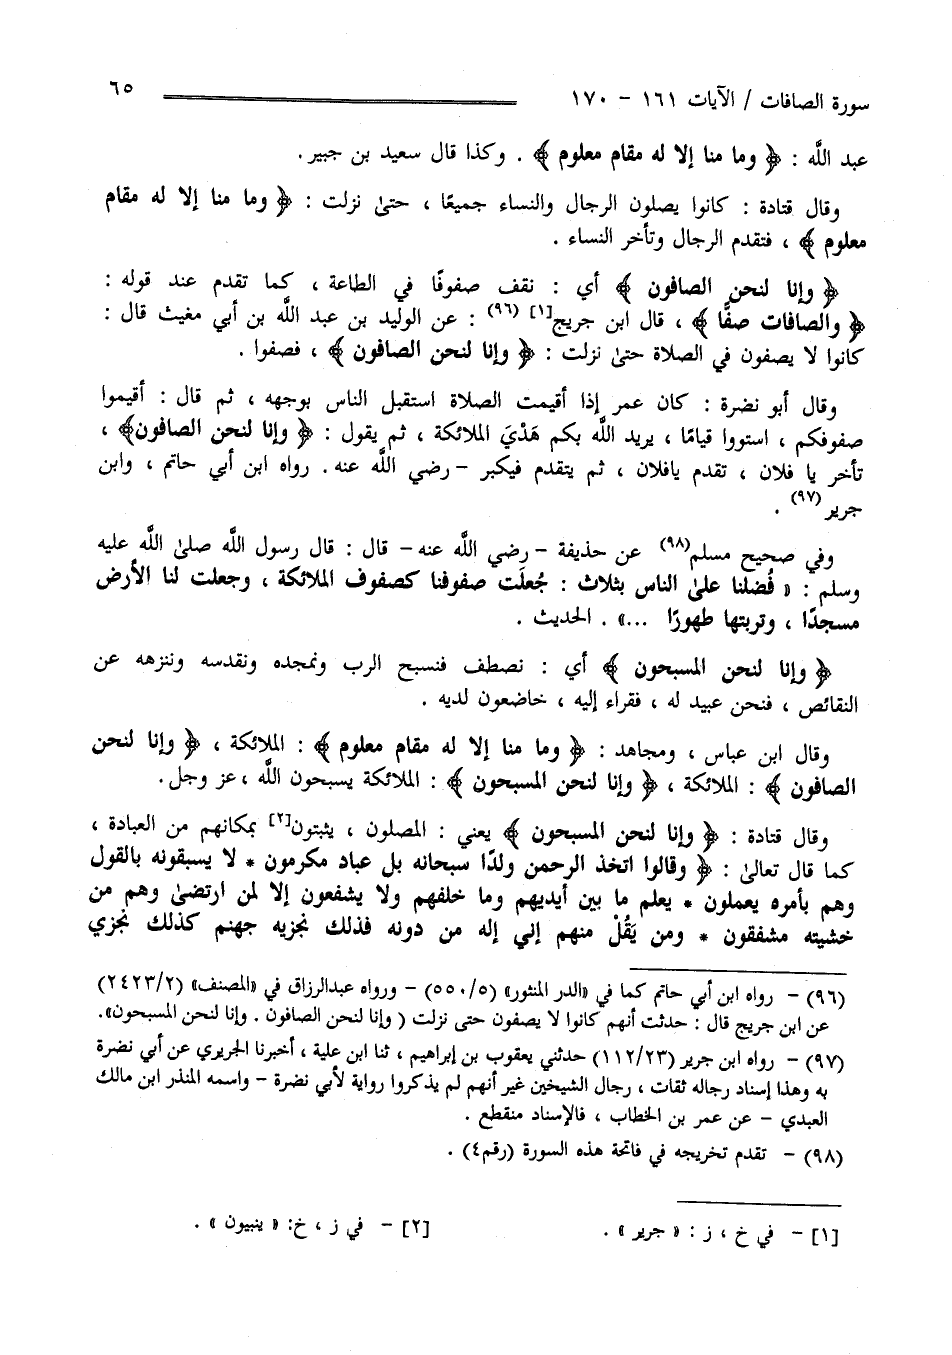 سورة الصافات / الآيات ١٦١ - ١٧٠ ٦٥
عبد اللَّه : ﴿ وما منا إلا له مقام معلوم ﴾ . وكذا قال سعيد بن جبير .
وقال قتادة : كانوا يصلون الرجال والنساء جميعًا ، حتىٰ نزلت : ﴿ وما منا إلا له مقام
معلوم ﴾ ، فتقدم الرجال وتأخر النساء .
﴿ وإنا لنحن الصافون ﴾ أي : نقف صفوفًا في الطاعة ، كما تقدم عند قوله :
﴿ والصافات صفًّا ﴾ ، قال ابن جريج[١] (٩٦) : عن الوليد بن عبد اللَّه بن أبي مغيث قال :
كانوا لا يصفون في الصلاة حتىٰ نزلت : ﴿ وإنا لنحن الصافون ﴾ ، فصفوا .
وقال أبو نضرة : كان عمر إذا أقيمت الصلاة استقبل الناس بوجهه ، ثم قال : أقيموا
صفوفكم ، استووا قيامًا ، يريد اللَّه بكم هَدْيَ الملائكة ، ثم يقول : ﴿ وإنا لنحن الصافون﴾ ،
تأخر يا فلان ، تقدم يافلان ، ثم يتقدم فيكبر - رضي اللَّه عنه . رواه ابن أبي حاتم ، وابن
جرير (٩٧) .
وفي صحيح مسلم(٩٨) عن حذيفة - رضي اللَّه عنه - قال : قال رسول اللَّه صلىٰ اللَّه عليه
وسلم : « فُضلنا علىٰ الناس بثلاث : جُعلَت صفوفنا كصفوف الملائكة ، وجعلت لنا الأرض
مسجدًا ، وتربتها طهورًا ...» . الحديث .
﴿ وإنا لنحن المسبحون ﴾ أي : نصطف فنسبح الرب ونمجده ونقدسه وننزهه عن
النقائص ، فنحن عبيد له ، فقراء إليه ، خاضعون لديه .
وقال ابن عباس ، ومجاهد : ﴿ وما منا إلا له مقام معلوم ﴾ : الملائكة ، ﴿ وإنا لنحن
الصافون ﴾ : الملائكة ، ﴿ وإنا لنحن المسبحون ﴾ : الملائكة يسبحون اللَّه ، عز وجل .
وقال قتادة : ﴿ وإنا لنحن المسبحون ﴾ يعني : المصلون ، يثبتون[٢] بمكانهم من العبادة ،
كما قال تعالىٰ : ﴿ وقالوا اتخذ الرحمن ولدًا سبحانه بل عباد مكرمون * لا يسبقونه بالقول
وهم بأمره يعملون * يعلم ما بين أيديهم وما خلفهم ولا يشفعون إلا لمن ارتضىٰ وهم من
خشيته مشفقون * ومن يَقُلْ منهم إني إله من دونه فذلك نجزيه جهنم كذلك نجزي
(٩٦) - رواه ابن أبي حاتم كما في «الدر المنثور» (٥/ ٥٥٠) - ورواه عبدالرزاق في «المصنف» (٢/ ٢٤٢٣)
عن ابن جريج قال : حدثت أنهم كانوا لا يصفون حتى نزلت ( وإنا لنحن الصافون . وإنا لنحن المسبحون».
(٩٧) - رواه ابن جرير (٢٣/ ١١٢) حدثني يعقوب بن إبراهيم ، ثنا ابن علية ، أخبرنا الجريري عن أبي نضرة
به وهذا إسناد رجاله ثقات ، رجال الشيخين غير أنهم لم يذكروا رواية لأبي نضرة - واسمه المنذر ابن مالك
العبدي - عن عمر بن الخطاب ، فالإسناد منقطع .
(٩٨) - تقدم تخريجه في فاتحة هذه السورة (رقم٤) .
[١] - في خ ، ز : « جرير » . [٢] - في ز ، خ: « ينبيون » .